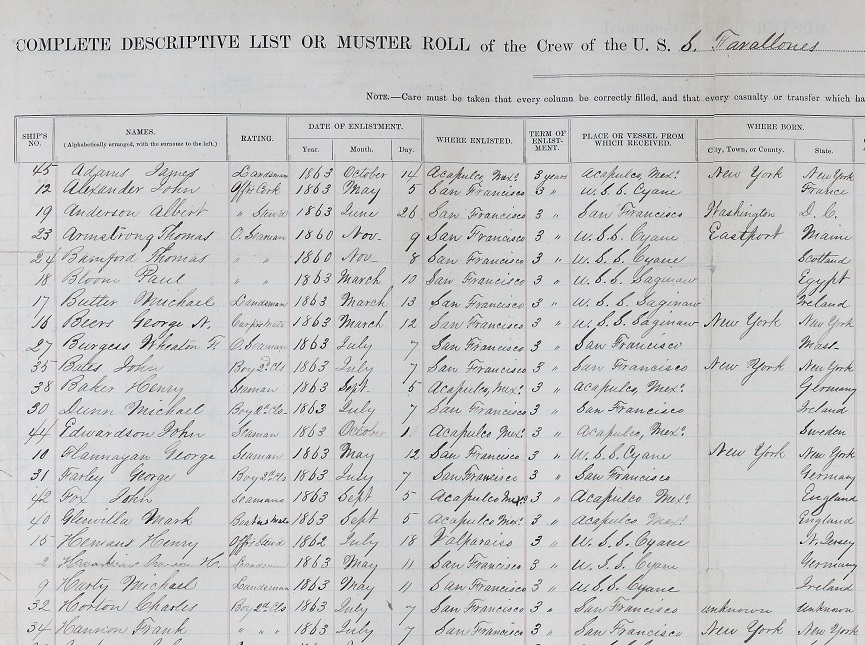 COMPLETE DESCRIPTIVE LIST OR MUSTER ROLL of the Crew of the U. S. S. Farallones
NOTE.—Care must be taken that every column be correctly filled, and that every casualty or transfer which ha
SHIP'S NO. NAMES. (Alphabetically arranged, with the surname to the left.) RATING. DATE OF ENLISTMENT. Year. Month. Day. WHERE ENLISTED. TERM OF ENLIST-MENT. PLACE OR VESSEL FROM WHICH RECEIVED. WHERE BORN. City, Town, or County. State.
45 Adams James Landsman 1863 October 14 Acapulco, Mexo. 3 years Acapulco, Mexo. New York New York
12 Alexander John Offrs Cook 1863 May 5 San Francisco 3 " U. S. S. Cyane France
19 Anderson Albert " 1863 June 26 San Francisco 3 " San Francisco Washington D. C.
23 Armstrong Thomas O. Seaman 1860 Nov. 9 San Francisco 3 " U. S. S. Cyane Eastport Maine
24 Bamford Thomas " " 1860 Nov. 8 San Francisco 3 " U. S. S. Cyane Scotland
18 Bloom Paul " " 1863 March 10 San Francisco 3 " U. S. S. Saginaw Egypt
17 Butler Michael Landsman 1863 March 13 San Francisco 3 " U. S. S. Saginaw Ireland
16 Beers George N. Carps Mate 1863 March 12 San Francisco 3 " U. S. S. Saginaw New York New York
27 Burgess Wheaton O. Seaman 1863 July 7 San Francisco 3 " San Francisco Mass.
35 Bates John Boy 2d Cls 1863 July 7 San Francisco 3 " San Francisco New York New York
38 Baker Henry Seaman 1863 Sept. 5 Acapulco, Mexo. 3 " Acapulco, Mexo. Germany
30 Dunn Michael Boy 2d Cls 1863 July 7 San Francisco 3 " San Francisco Ireland
44 Edwardson John Seaman 1863 October 1 Acapulco Mexo. 3 " Acapulco, Mexo. Sweden
10 Flannagan George Seaman 1863 May 12 San Francisco 3 " U. S. Cyane New York New York
31 Farley George Boy 2d Cls 1863 July 7 San Francisco 3 " San Francisco Germany
42 Fox John Seamans 1863 Sept 5 Acapulco Mexo. 3 " Acapulco Mexo. England
40 Glenvilla Mark Boatns Mate 1863 Sept 5 Acapulco Mexo. 3 " Acapulco Mexo. England
15 Hemans Henry 1862 July 18 Valparaiso 3 " U. S. S. Cyane N. Jersey
2 1863 May 11 San Francisco 3 " U. S. S. Cyane Germany
9 Harty Michael Landsman 1863 May 11 San Francisco 3 " U. S. S. Cyane Ireland
32 Horton Charles Boy 2d Cls 1863 July 7 San Francisco 3 " San Francisco unknown unknown
34 Hannon Frank " " " 1863 July 7 San Francisco 3 " San Francisco New York New York